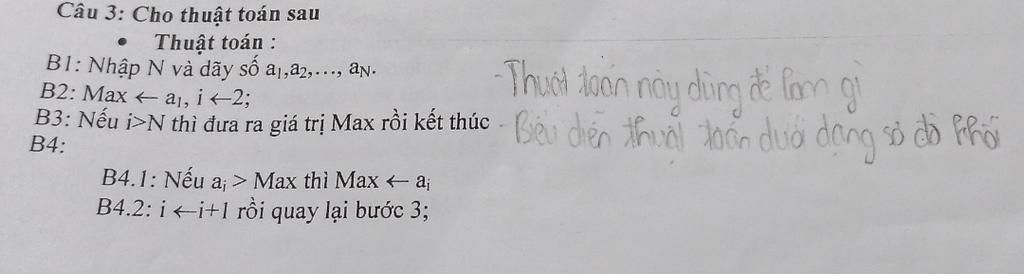 Câu 3: Cho thuật toán sau
• Thuật toán :
B1: Nhập N và dãy số a₁,a₂,…, aN.
B2: Max ← a₁, i ←2;
B3: Nếu i>N thì đưa ra giá trị Max rồi kết thúc
B4:
B4.1: Nếu aᵢ > Max thì Max ← aᵢ
B4.2: i ←i+1 rồi quay lại bước 3;
- Thuật toán này dùng để làm gì
- Biểu diễn thuật toán dưới dạng sơ đồ khối